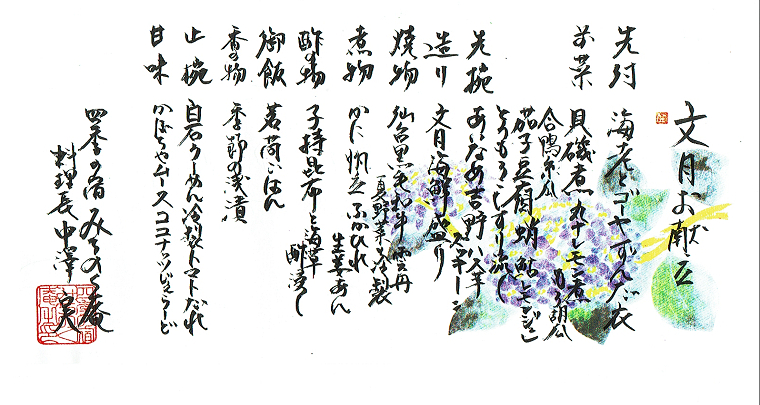 文月お献立
先付
海老とゴーヤずんだ衣
前菜
貝磯煮 丸十レモン煮 もろ胡瓜
合鴨糸瓜
茄子豆腐 蛸 鮎
とうもろこしすり流し
先椀
あいなめ吉野
造り
文月海鮮盛り
焼物
仙台黒毛和牛 雲丹
夏野菜冷製
煮物
かに帆立ふかひれ
生姜あん
酢の物
子持昆布と海草
酢浸し
御飯
茗荷ごはん
香の物
季節の浅漬
止椀
白石うーめん冷製トマトだれ
甘味
かぼちゃムース ココナッツ
四季の宿 みちのく庵
料理長 中澤 実